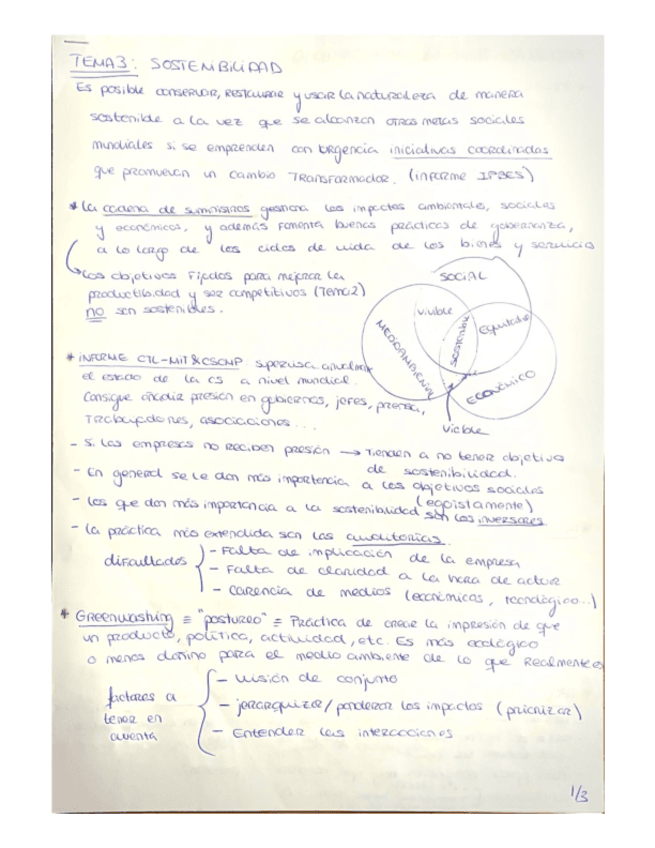 TEMA 3: SOSTENIBILIDAD
Es posible conservar, restaurar y usar la naturaleza de manera
sostenible a la vez que se alcanzan otras metas sociales
mundiales si se emprenden con urgencia iniciativas coordinadas
que promuevan un cambio transformador. (informe IPBES)
* La cadena de suministros gestiona los impactos ambientales, sociales
y económicos, y además fomenta buenas prácticas de gobernanza,
a lo largo de los ciclos de vida de los bienes y servicio
Los objetivos fijados para mejorar la
productibidad y ser competitivos (Tema 2)
no son sostenibles.
SOCIAL
vivible
equitativo
MEDIOAMBIENTE
sostenible
ECONÓMICO
viable
* INFORME CTL-MIT & CSCMP. supervisa anualmente
el estado de la CS a nivel mundial.
Consigue añadir presión en gobiernos, jefes, prensa,
trabajadores, asociaciones...
- Si las empresas no reciben presión → tienden a no tener objetivo
de sostenibilidad.
- En general se le dan más importancia a los objetivos sociales
(egoístamente)
- Los que dan más importancia a la sostenibilidad son los inversores
- La práctica más extendida son las auditorías.
dificultades
- Falta de implicación de la empresa
- Falta de claridad a la hora de actuar
- Carencia de medios (económicos, tecnológico...)
* Greenwashing ≡ "postureo" ≡ Práctica de crear la impresión de que
un producto, política, actividad, etc. Es más ecológico
o menos dañino para el medio ambiente de lo que realmente es
factores a
tener en
cuenta
- visión de conjunto
- jerarquizar/ponderar los impactos (priorizar)
- Entender las interacciones
1/3